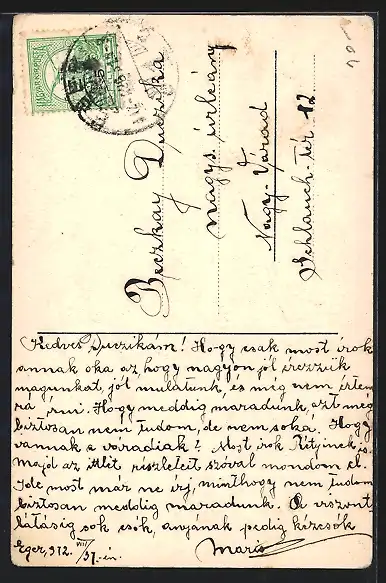 MAGYAR KIR. POSTA
Beczkay Duczika
nagys. úrleány
Nagy-Várad
Schlauch-tér 12
Kedves Duczikám! Hogy csak most irok
annak oka az, hogy nagyon jól érezzük
magunkat, jól mulatunk, és még nem értem
rá irni. Hogy meddig maradunk, azt még
biztosan nem tudom, de nem soká. Hogy
vannak a váradiak? Most irok Pityinek is
majd az itteit részleteit szóval mondom el.
Ide most már ne irj, minthogy nem tudom
biztosan meddig maradunk. A viszont
látásig sok csók, anyának pedig kézcsók
Eger, 912. VIII/31.-én. Maris